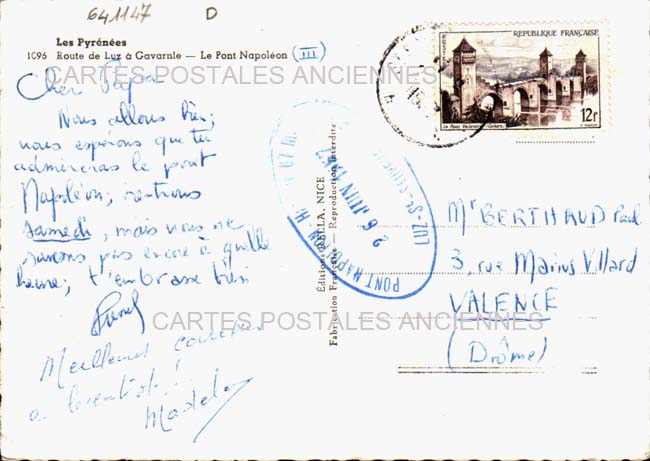 641147 D
Les Pyrénées
1096 Route de Luz à Gavarnie — Le Pont Napoléon (III)
CARTES POSTALES ANCIENNES
Cher Papa
Nous allons bien;
nous espérons que tu
admireras le pont
Napoléon; rentrons
samedi, mais nous ne
savons pas encore à quelle
heure; t'embrasse bien
Meilleurs
a bientôt!
CARTES POSTALES ANCIENNES
Éditions RELLA, NICE
Fabrication Française Reproduction interdite
PONT NAPOLÉON
LUZ-St-SAUVEUR
26 JUIN
POSTES
REPUBLIQUE FRANÇAISE
Le Pont Valentré (Cahors)
12f
Mr BERTHAUD Paul
3, rue Marius Villard
VALENCE
(Drôme)